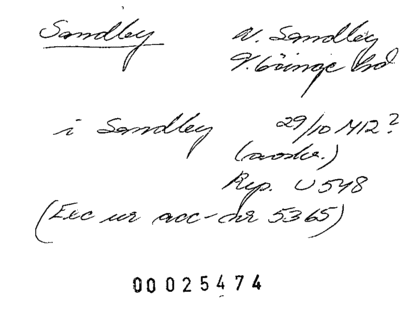 Sandby
N. Sandby
V. Göinge hd
i Sandby
29/10 1412?
(avskr.)
Rep. U 548
(Exc ur acc-nr 5365)
00025474